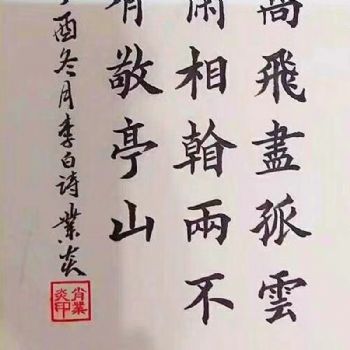 高飛盡孤雲
閑相看兩不
有敬亭山
酉冬月李白詩業炎
肖業炎印